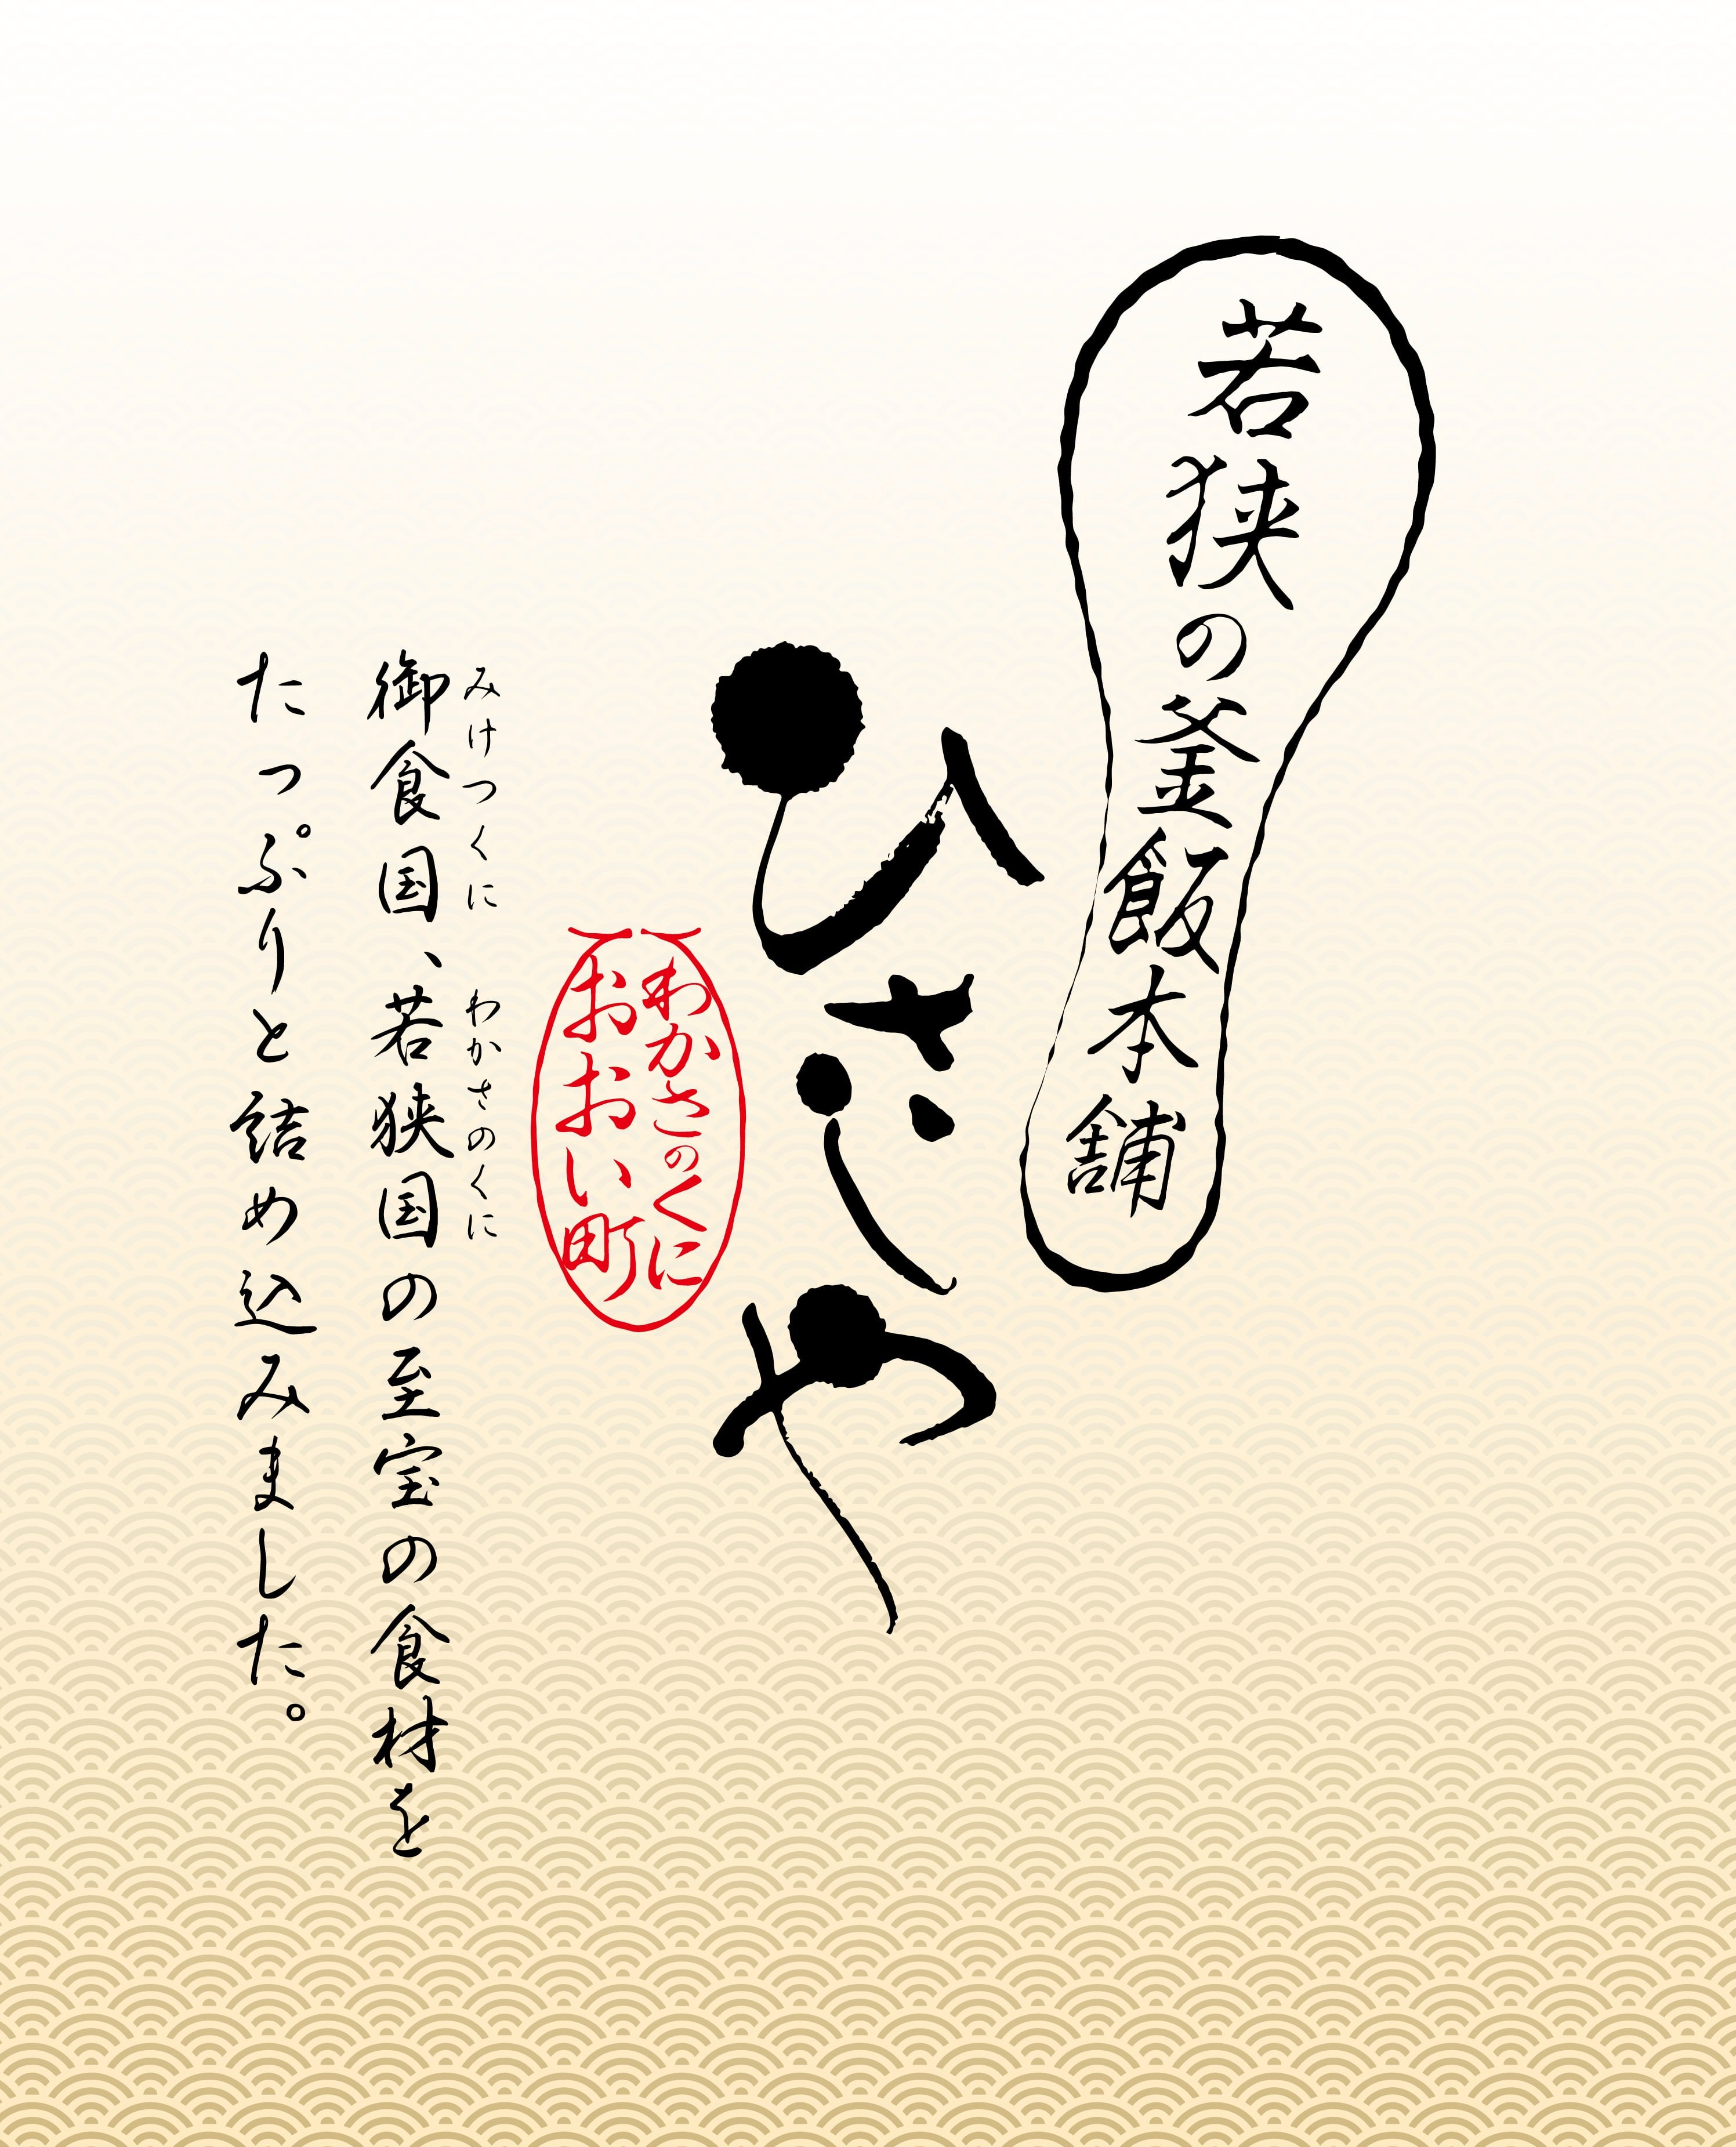 若狭の釜飯本舗
ひさや
わかさのくに
おおい町
みけつくに わかさのくに
御食国、若狭国の至宝の食材を
たっぷりと詰め込みました。